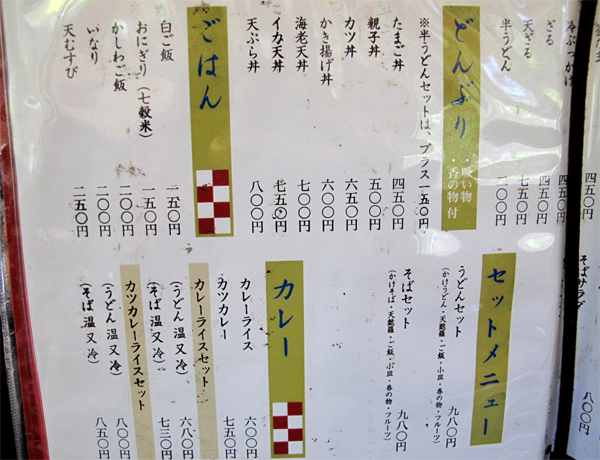 冷ぶっかけ
ざる
天ざる
半うどん
四五〇円
四五〇円
七五〇円
二〇〇円
どんぶり
・吸い物
・香の物 付
※半うどんセットは、プラス一五〇円
たまご丼 四五〇円
親子丼 五〇〇円
カツ丼 六五〇円
かき揚げ丼 六〇〇円
海老天丼 七〇〇円
イカ天丼 七五〇円
天ぷら丼 八〇〇円
ごはん
白ご飯 一五〇円
おにぎり(七穀米) 一五〇円
かしわご飯 二〇〇円
いなり 二〇〇円
天むすび 二五〇円
そばサラダ
八〇〇円
セットメニュー
うどんセット 九八〇円
(かけうどん・天麩羅・ご飯・小皿・香の物・フルーツ)
そばセット 九八〇円
(かけそば・天麩羅・ご飯・小皿・香の物・フルーツ)
カレー
カレーライス 六〇〇円
カツカレー 七五〇円
カレーライスセット
(うどん 温 又 冷) 六八〇円
(そば 温 又 冷) 七三〇円
カツカレーライスセット
(うどん 温 又 冷) 八〇〇円
(そば 温 又 冷) 八五〇円